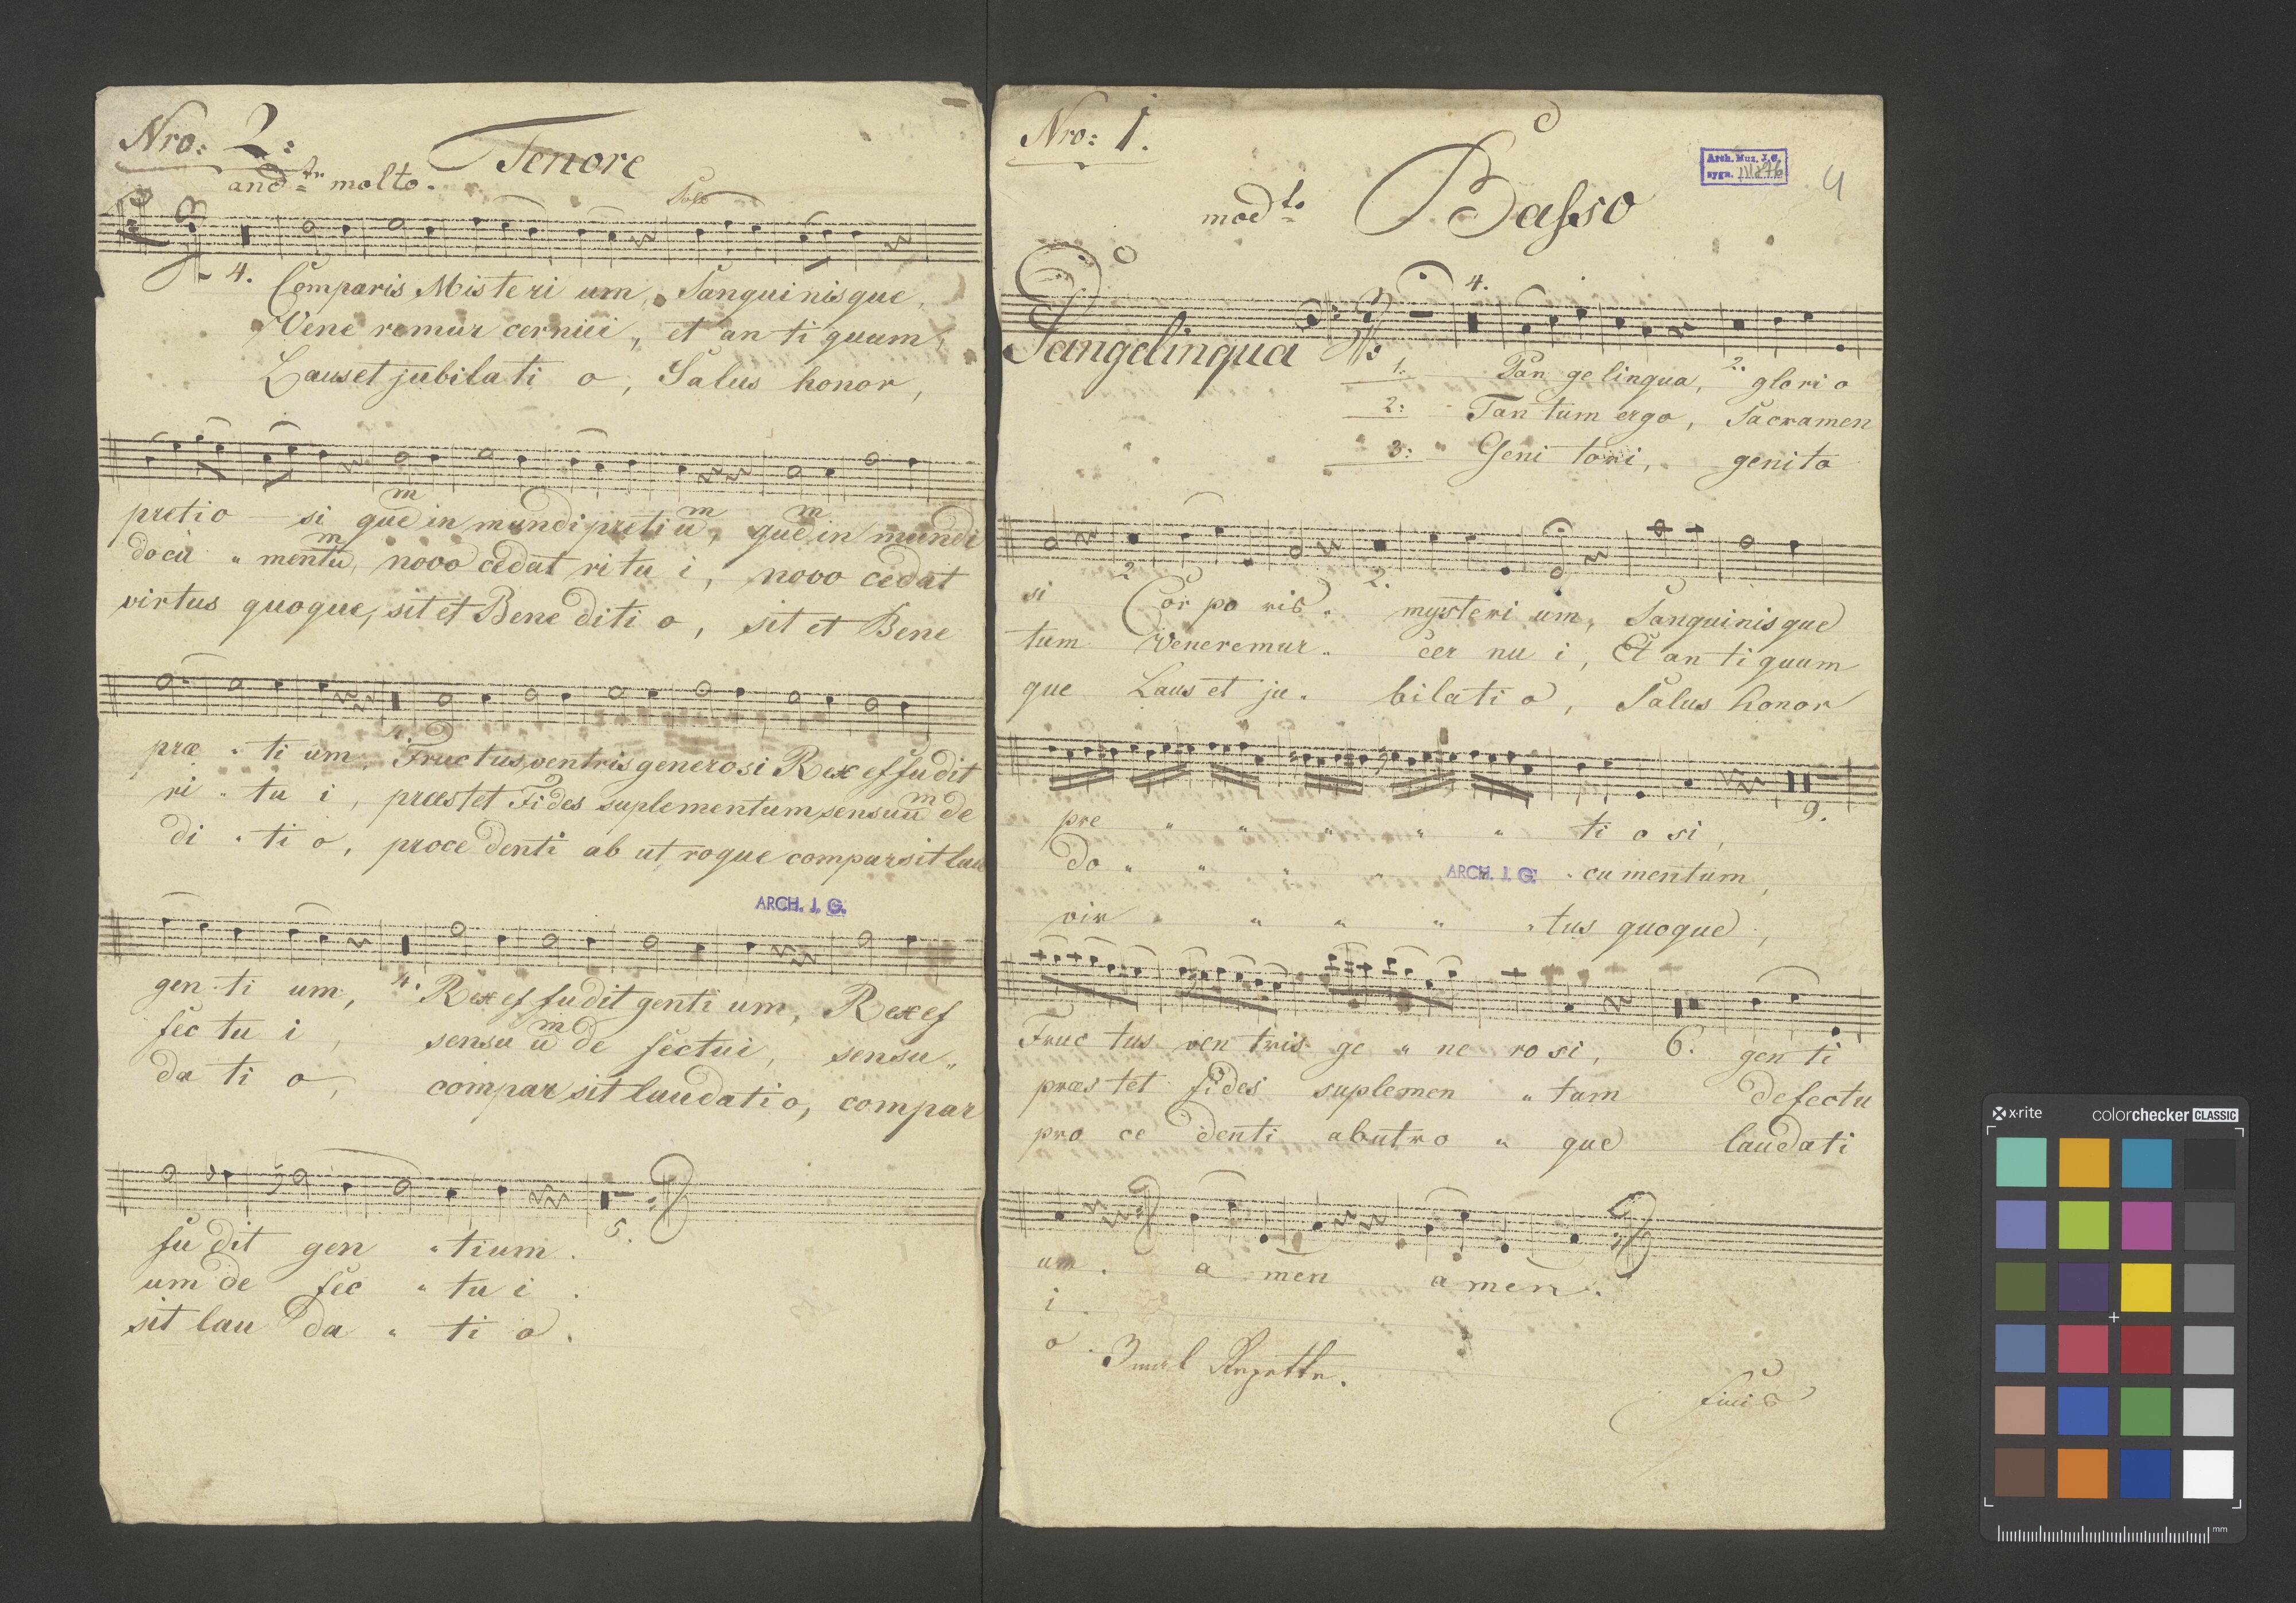 Nro: 2:
Tenore
and.te molto.
Solo
4. Comparis Misteri um, Sanguinisque,
Vene remur cernui, et an ti quum,
Laus et jubilati o, Salus honor,
pretio si quem in mundi pretium, quem in mundi
docu " mentum, novo cedat ri tu i, novo cedat
virtus quoque, sit et Bene diti o, sit et Bene
præ " ti um, Fructus ventris generosi Rex effudit
ri " tu i, præstet Fides suplementum sensuum de
di " ti o, procedenti ab ut roque compar sit lau
ARCH. J. G.
gen ti um, 4. Rex ef fudit genti um, Rex ef
fec tu i, sensu um de fectui, sensu"
da ti o, compar sit laudatio, compar
5.
fu dit gen " tium.
um de fec " tu i.
sit lau da " ti o.
Nro: 1.
Basso
Arch. Muz. J. G.
sygn.
4
mod.to
4.
Pangelingua
1: Pan ge lingua, 2. glori o
2: Tan tum ergo, Sacramen
3: " Geni tori, genito
2 2.
si Cor po ris " mysteri um, Sanguinis que
tum Veneremur " cer nu i, Et an ti quum
que Laus et ju " bilati o, Salus honor
9.
pre " " " " " ti o si,
do " " " " " cu mentum,
ARCH. J. G.
vir " " " " " tus quoque,
Fruc tus ven tris ge " ne ro si, 6. gen ti
præs tet fides suplemen " tum defectu
pro ce denti abutro " que laudati
um. a men a men.
i.
o. 3 mal Repette.
finis
x-rite colorchecker CLASSIC
mm